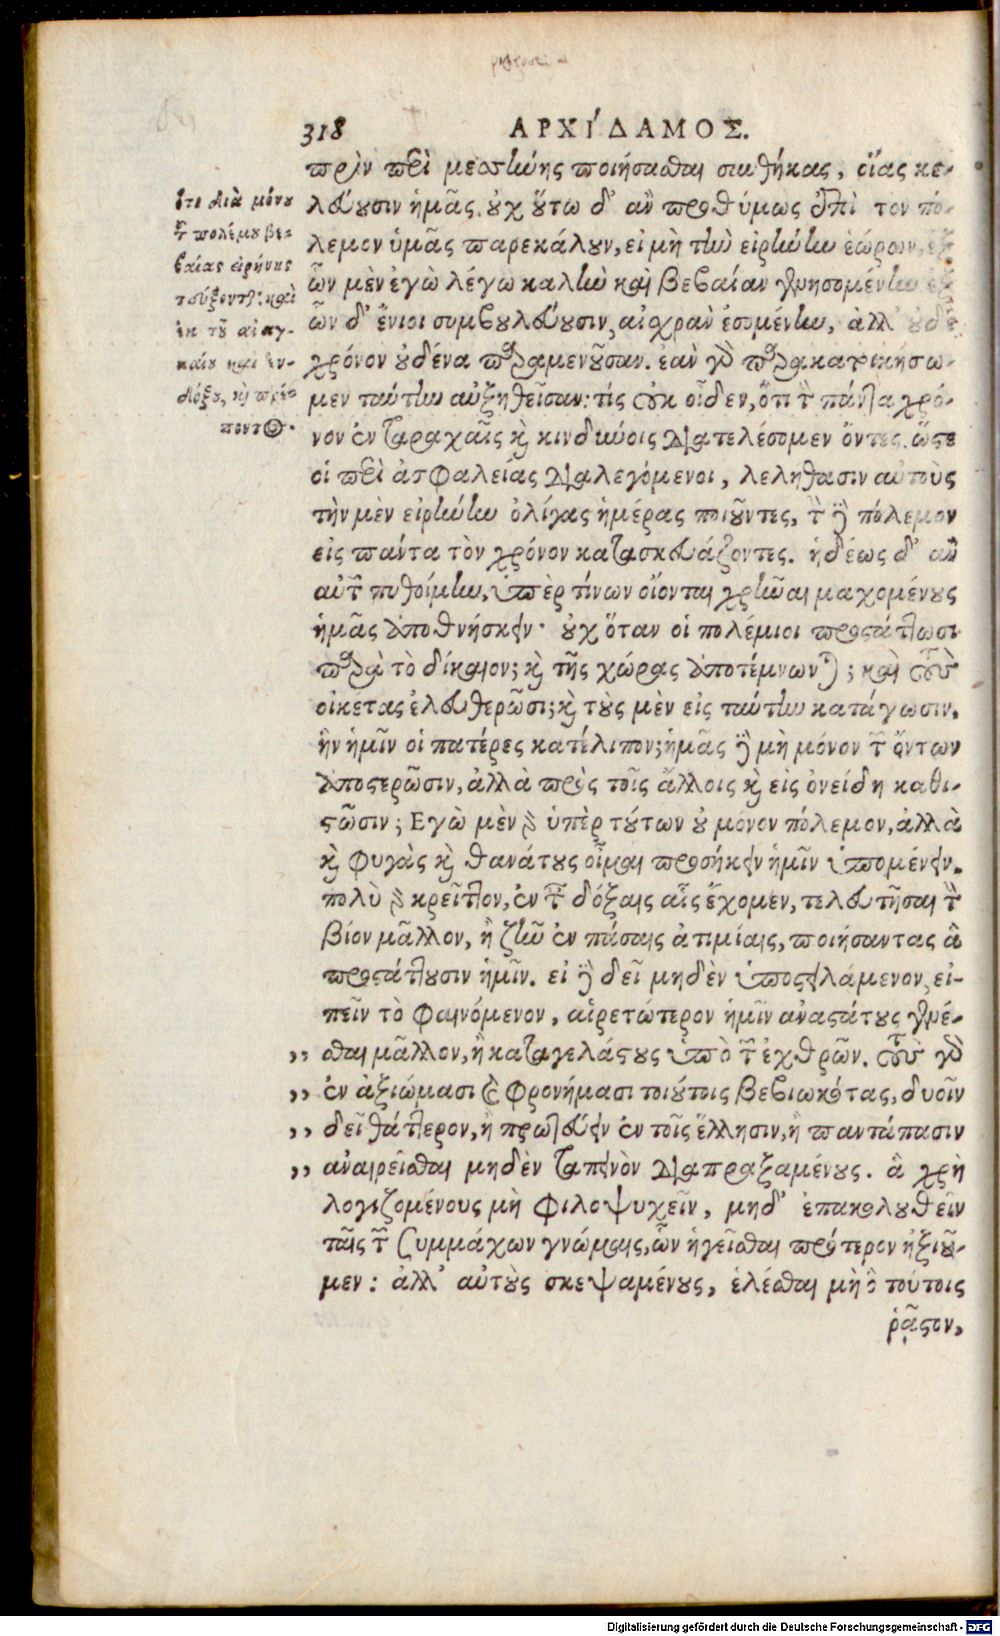 318 ΑΡΧΊΔΑΜΟΣ.
πρὶν περὶ μεσσήνης ποιήσασθαι συνθήκας, οἵας κε-
λεύουσιν ἡμᾶς. οὐχ οὕτω δ' ἂν προθύμως ἐπὶ τὸν πό-
λεμον ὑμᾶς παρεκάλουν, εἰ μὴ τὴν εἰρήνην ἑώρων, ἐξ
ὧν μὲν ἐγὼ λέγω καλὴν καὶ βεβαίαν γενησομένην ἐξ
ὧν δ' ἔνιοι συμβουλεύουσιν, αἰσχρὰν ἐσομένην, ἀλλ' οὐδὲ
χρόνον οὐδένα παραμενοῦσαν. ἐὰν γὰρ παρακατοικήσω-
μεν ταύτην αὐξηθεῖσαν: τίς οὐκ οἶδεν, ὅτι τὸν πάντα χρό-
νον ἐν ταραχαῖς καὶ κινδύνοις διατελέσομεν ὄντες. ὥστε
οἱ περὶ ἀσφαλείας διαλεγόμενοι, λελήθασιν αὑτοὺς
τὴν μὲν εἰρήνην ὀλίγας ἡμέρας ποιοῦντες, τὸν δὲ πόλεμον
εἰς πάντα τὸν χρόνον κατασκευάζοντες. ἡδέως δ' ἂν
αὐτῶν πυθοίμην, ὑπὲρ τίνων οἴονται χρῆναι μαχομένους
ἡμᾶς ἀποθνήσκειν· οὐχ ὅταν οἱ πολέμιοι προστάττωσι
παρὰ τὸ δίκαιον; καὶ τῆς χώρας ἀποτέμνωνται; καὶ τοὺς
οἰκέτας ἐλευθερῶσι; καὶ τοὺς μὲν εἰς ταύτην κατάγωσιν,
ἣν ἡμῖν οἱ πατέρες κατέλιπον; ἡμᾶς δὲ μὴ μόνον τῶν ὄντων
ἀποστερῶσιν, ἀλλὰ πρὸς τοῖς ἄλλοις καὶ εἰς ὀνείδη καθι-
στῶσιν; Ἐγὼ μὲν γὰρ ὑπὲρ τούτων οὐ μόνον πόλεμον, ἀλλὰ
καὶ φυγὰς καὶ θανάτους οἶμαι προσήκειν ἡμῖν ὑπομένειν.
πολὺ γὰρ κρεῖττον, ἐν ταῖς δόξαις αἷς ἔχομεν, τελευτῆσαι τὸν
βίον μᾶλλον, ἢ ζῆν ἐν πάσαις ἀτιμίαις, ποιήσαντας ἃ
προστάττουσιν ἡμῖν. εἰ δὲ δεῖ μηδὲν ὑποστειλάμενον, εἰ-
πεῖν τὸ φαινόμενον, αἱρετώτερον ἡμῖν ἀναστάτους γενέ-
,, σθαι μᾶλλον, ἢ καταγελάστους ὑπὸ τῶν ἐχθρῶν. τοὺς γὰρ
,, ἐν ἀξιώμασι καὶ φρονήμασι τοιούτοις βεβιωκότας, δυοῖν
,, δεῖ θάτερον, ἢ πρωτεύειν ἐν τοῖς ἕλλησιν, ἢ παντάπασιν
,, ἀναιρεῖσθαι μηδὲν ταπεινὸν διαπραξαμένους. ἃ χρὴ
λογιζομένους μὴ φιλοψυχεῖν, μηδ' ἐπακολουθεῖν
ταῖς τῶν συμμάχων γνώμαις, ὧν ἡγεῖσθαι πρότερον ἠξιοῦ-
μεν: ἀλλ' αὐτοὺς σκεψαμένους, ἑλέσθαι μὴ ὃ τούτοις
ῥᾷστον,
ὅτι διὰ μόνου
τοῦ πολέμου βε-
βαίας εἰρήνης
τεύξονται: καὶ
ἐκ τοῦ ἀναγ-
καίου καὶ ἐν-
δόξου, καὶ πρέ-
ποντος.
Digitalisierung gefördert durch die Deutsche Forschungsgemeinschaft - DFG